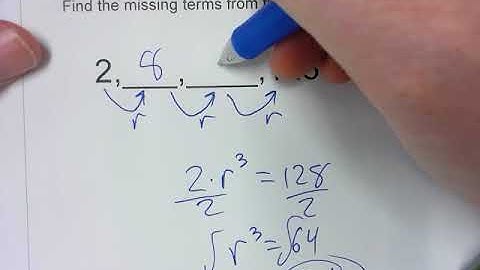 Find the missing terms from
2, 8, ___,
r r r
2 · r³ = 128
2 2
∫ r³ = ∫ 64